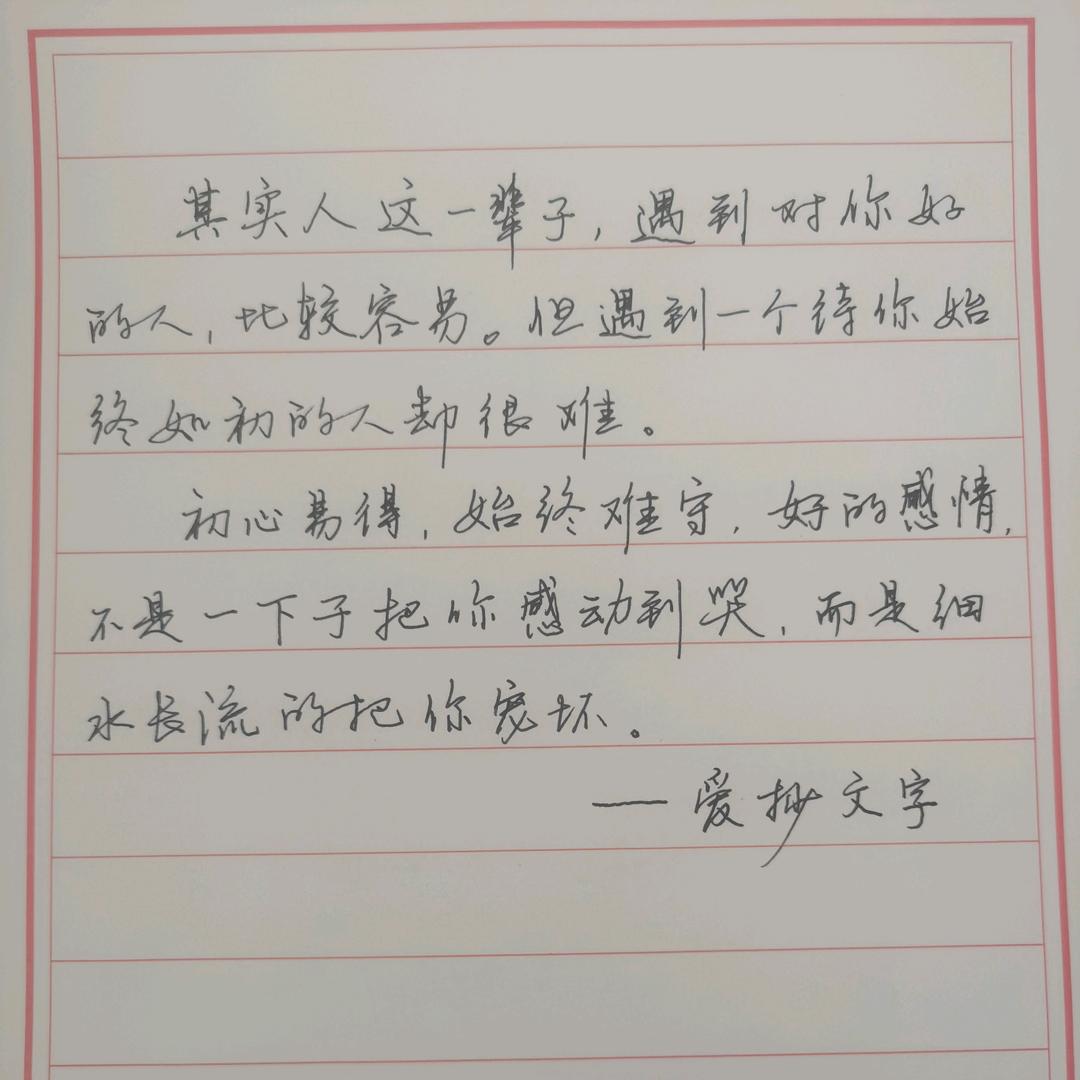 其实人这一辈子，遇到对你好
的人，比较容易。但遇到一个待你始
终如初的人却很难。
初心易得，始终难守，好的感情，
不是一下子把你感动到哭，而是细
水长流的把你宠坏。
——爱抄文字